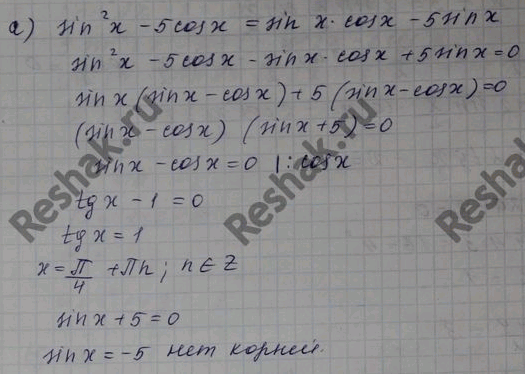 а) sin²x - 5cosx = sin x · cosx - 5sinx
sin²x - 5cosx - sinx · cosx + 5sinx = 0
sinx (sinx - cosx) + 5 (sinx - cosx) = 0
(sinx - cosx) (sinx + 5) = 0
sinx - cosx = 0 | : cosx
tgx - 1 = 0
tgx = 1
x = π/4 + πn ; n ∈ Z
sinx + 5 = 0
sinx = -5 нет корней.
Reshak.ru
Reshak.ru
Reshak.ru